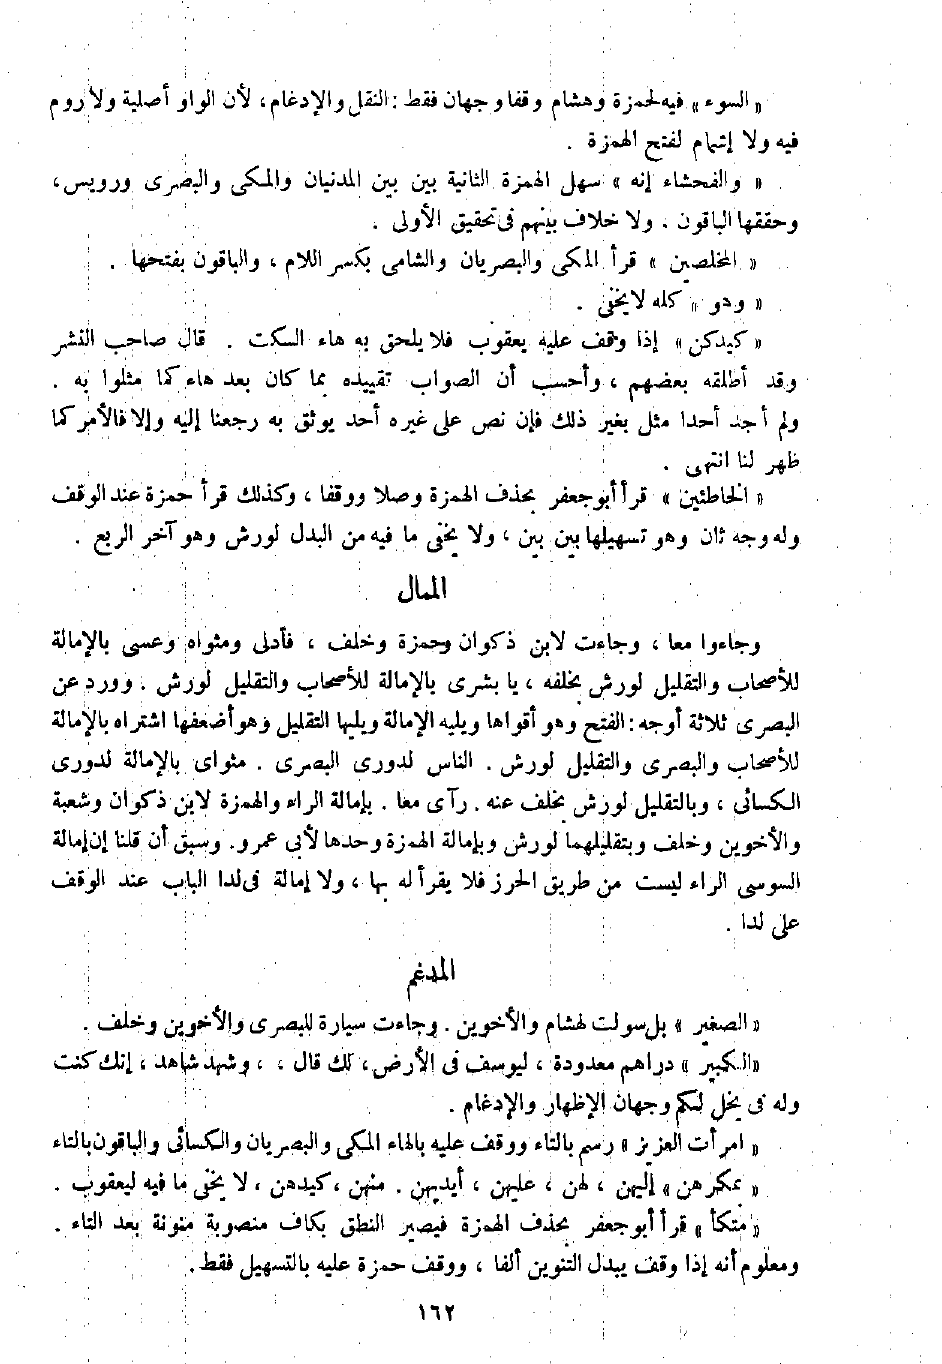 « السوء » فيه لحمزة وهشام وقفا وجهان فقط : النقل والإدغام، لأن الواو أصلية ولا روم
فيه ولا إشمام لفتح الهمزة .
« والفحشاء إنه » سهل الهمزة الثانية بين بين المدنيان والمكى والبصرى ورويس،
وحققها الباقون . ولا خلاف بينهم فى تحقيق الأولى .
« المخلصين » قرأ المكى والبصريان والشامى بكسر اللام ، والباقون بفتحها .
« وهو » كله لا يخفى .
« كيدكن » إذا وقف عليه يعقوب فلا يلحق به هاء السكت . قال صاحب النشر
وقد أطلقه بعضهم ، وأحسب أن الصواب تقييده بما كان بعد هاء كما مثلوا به .
ولم أجد أحدا مثل بغير ذلك فإن نص على غيره أحد يوثق به رجعنا إليه وإلا فالأمر كما
ظهر لنا انتهى .
« الخاطئين » قرأ أبو جعفر بحذف الهمزة وصلا ووقفا ، وكذلك قرأ حمزة عند الوقف
وله وجه ثان وهو تسهيلها بين بين ، ولا يخفى ما فيه من البدل لورش وهو آخر الربع .
الممال
وجاءوا معا ، وجاءت لابن ذكوان وحمزة وخلف ، فأدلى ومثواه وعسى بالإمالة
للأصحاب والتقليل لورش بخلفه ، يا بشرى بالإمالة للأصحاب والتقليل لورش . وورد عن
البصرى ثلاثة أوجه : الفتح وهو أقواها ويليه الإمالة ويليها التقليل وهو أضعفها اشتراه بالإمالة
للأصحاب والبصرى والتقليل لورش . الناس لدورى البصرى . مثواى بالإمالة لدورى
الكسائى ، وبالتقليل لورش بخلف عنه . رآى معا . بإمالة الراء والهمزة لابن ذكوان وشعبة
والأخوين وخلف وبتقليلهما لورش وبإمالة الهمزة وحدها لأبى عمرو. وسبق أن قلنا إن إمالة
السوسى الراء ليست من طريق الحرز فلا يقرأ له بها ، ولا إمالة فى لدا الباب عند الوقف
على لدا .
المدغم
« الصغير » بل سولت لهشام والأخوين . وجاءت سيارة للبصرى والأخوين وخلف .
« الكبير » دراهم معدودة ، ليوسف فى الأرض، لك قال ، ، وشهد شاهد ، إنك كنت
وله فى يخل لكم وجهان الإظهار والإدغام .
« امرأت العزيز » رسم بالتاء ووقف عليه بالهاء المكى والبصريان والكسائى والباقون بالتاء
« بمكرهن » إليهن ، لهن ، عليهن ، أيديهن . منهن ، كيدهن ، لا يخفى ما فيه ليعقوب .
« متكأ » قرأ أبو جعفر بحذف الهمزة فيصير النطق بكاف منصوبة منونة بعد التاء .
ومعلوم أنه إذا وقف يبدل التنوين ألفا ، ووقف حمزة عليه بالتسهيل فقط .
١٦٢